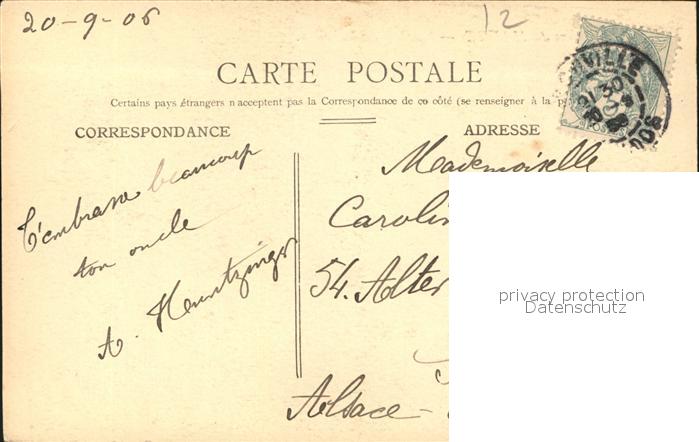 20-9-06
12
CARTE POSTALE
Certains pays étrangers n acceptent pas la Correspondance de co côté (se renseigner à la p
CORRESPONDANCE
T'embrasse beaucoup
ton oncle
A. Heuntzinger
ADRESSE
Mademoiselle
Carolin
54. Alter
Alsace-
VILLE
POSTES
privacy protection
Datenschutz